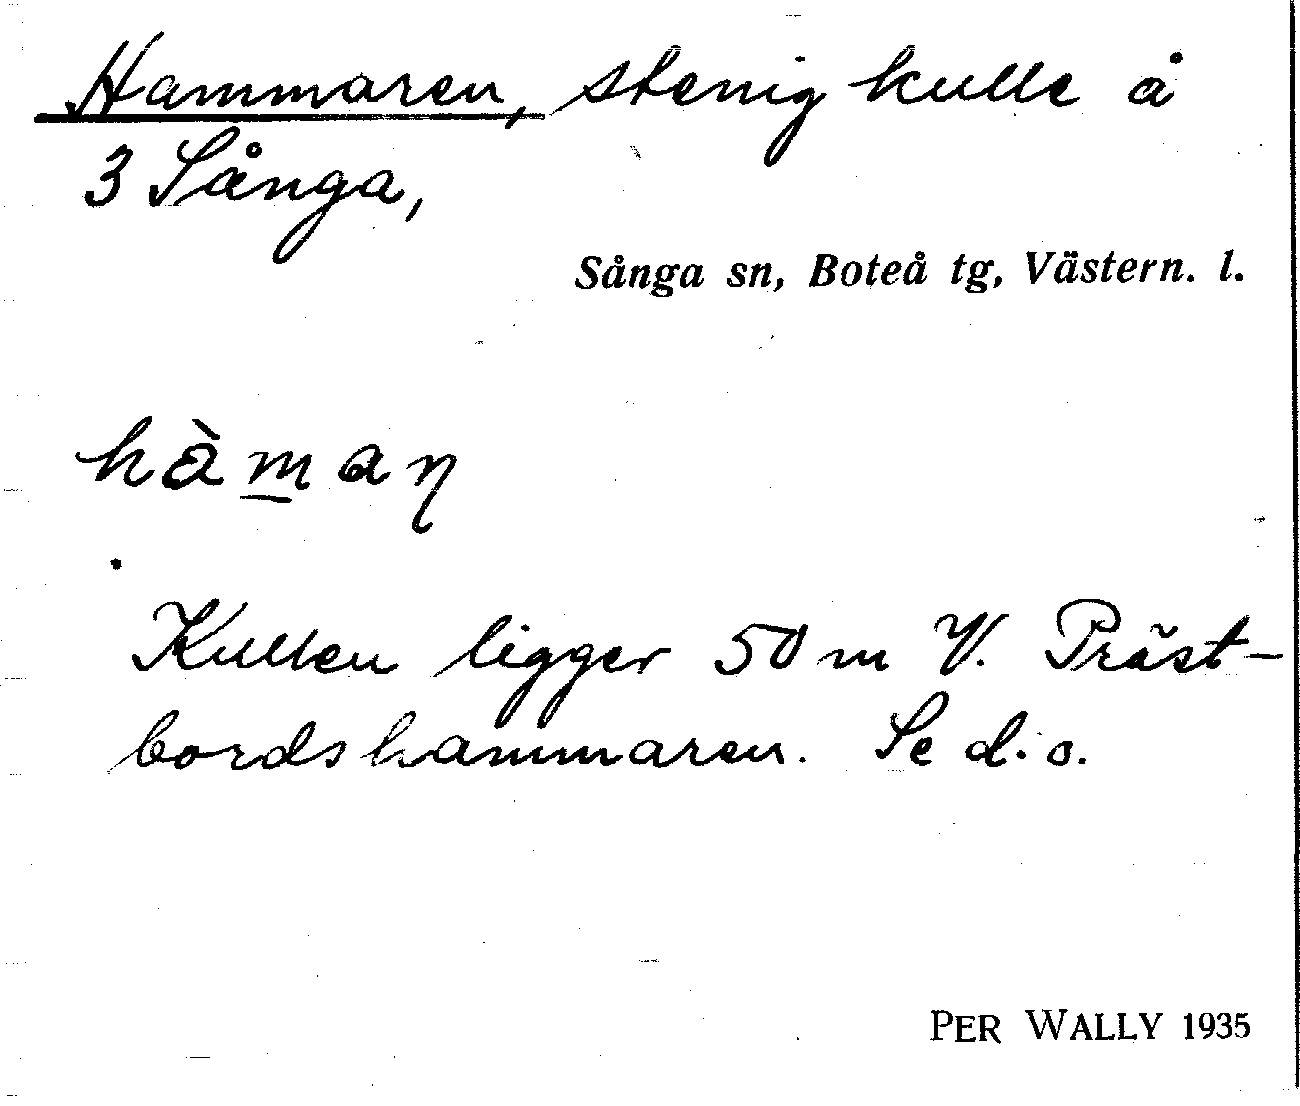 Hammaren, stenig kulle å
3 Sånga,
Sånga sn, Boteå tg, Västern. l.
hàm̲aƞ
Kullen ligger 50 m V. Präst-
bordshammaren. Se d. o.
PER WALLY 1935